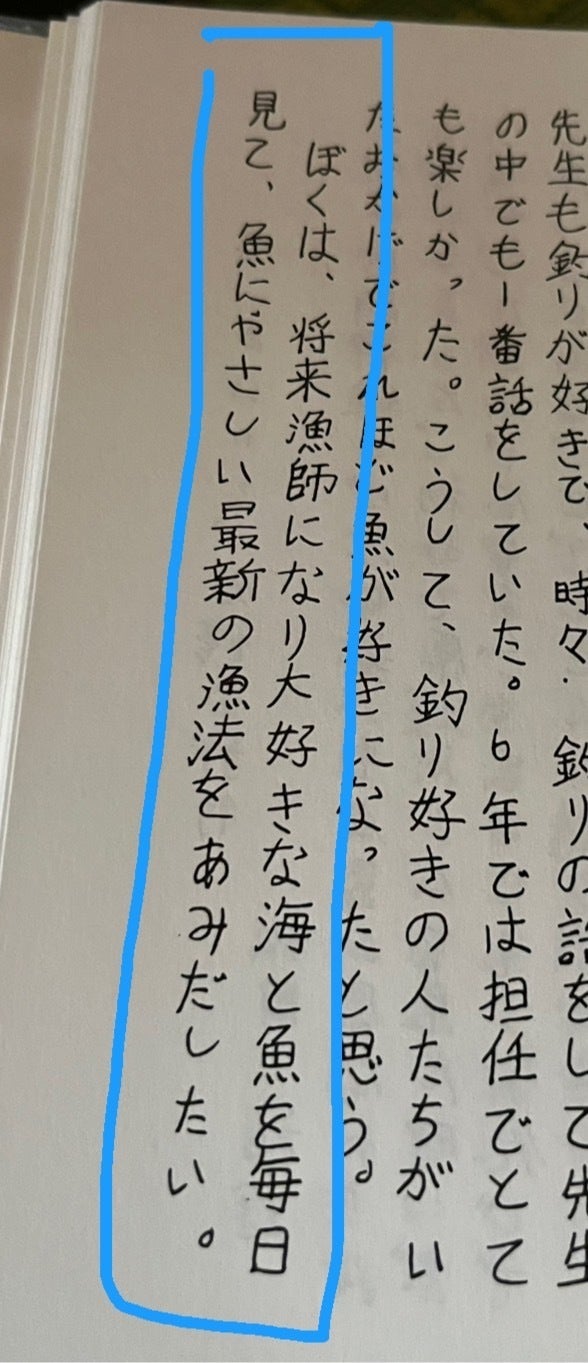 先生も釣りが好きで、時々、釣りの話をして先生
の中でも1番話をしていた。6年では担任でとて
も楽しかった。こうして、釣り好きの人たちがい
たおかげでこれほど魚が好きになったと思う。
ぼくは、将来漁師になり大好きな海と魚を毎日
見て、魚にやさしい最新の漁法をあみだしたい。